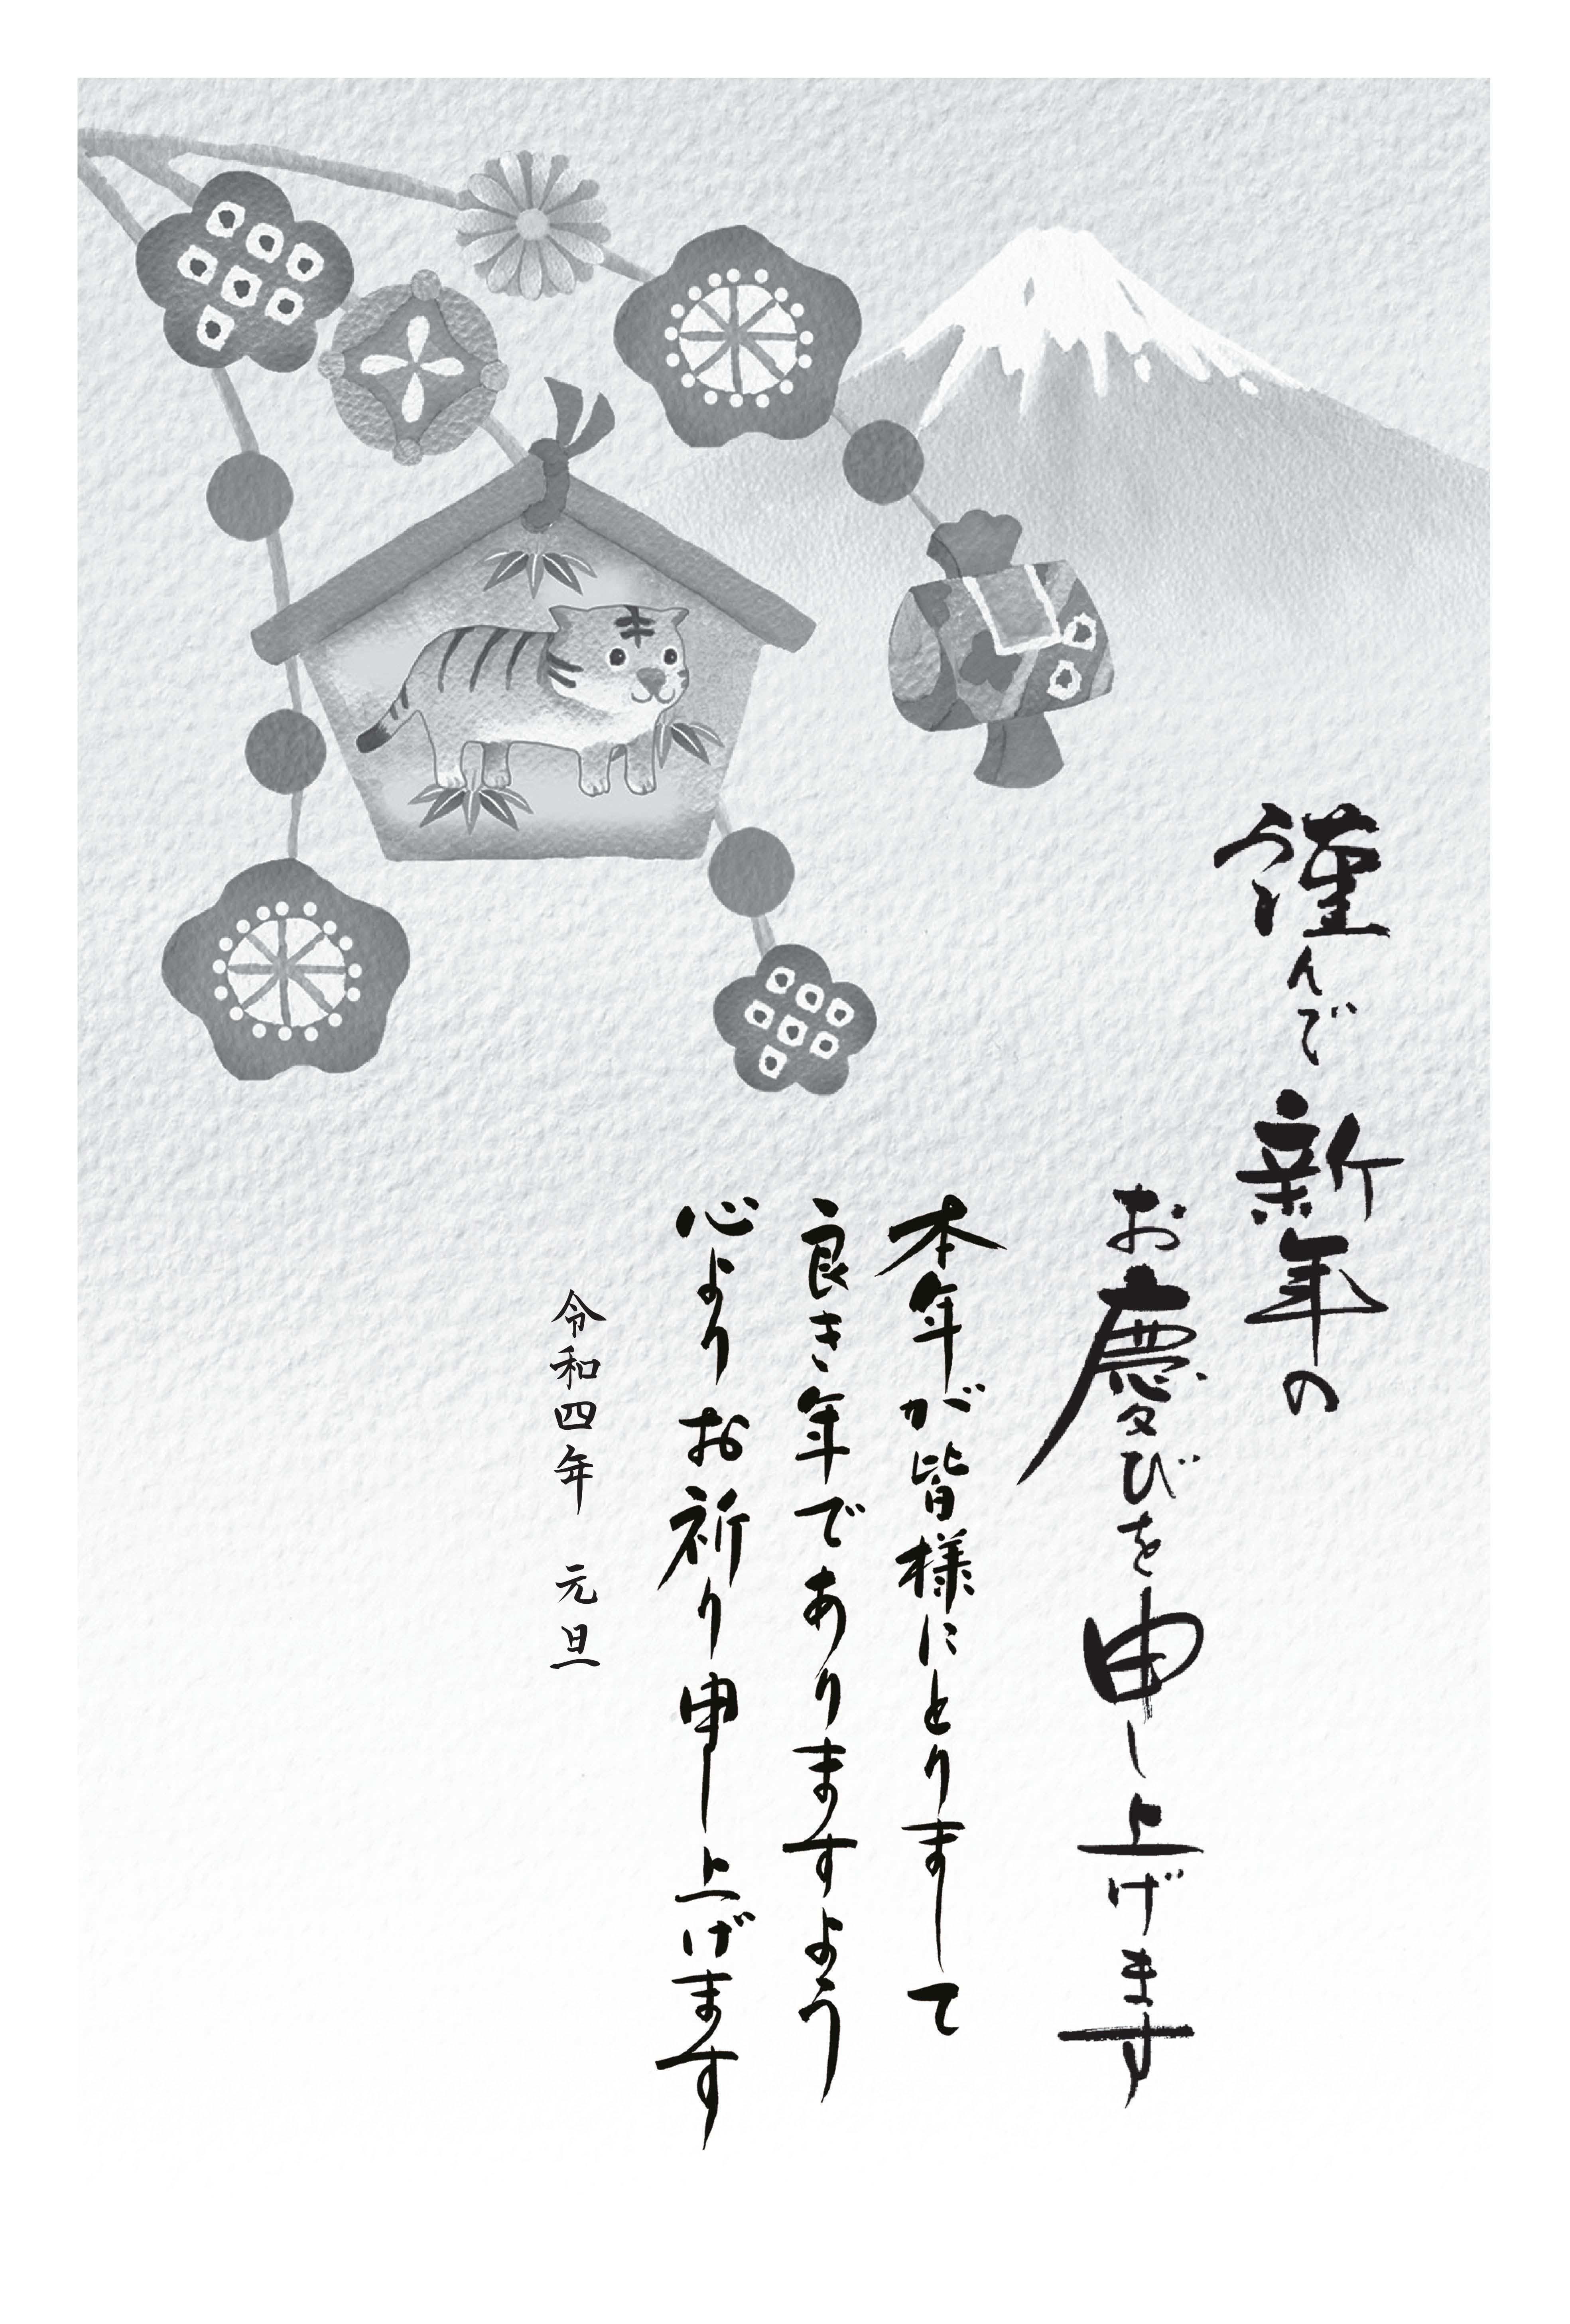 謹んで新年の
お慶びを申し上げます
本年が皆様にとりまして
良き年でありますよう
心よりお祈り申し上げます
令和四年 元旦